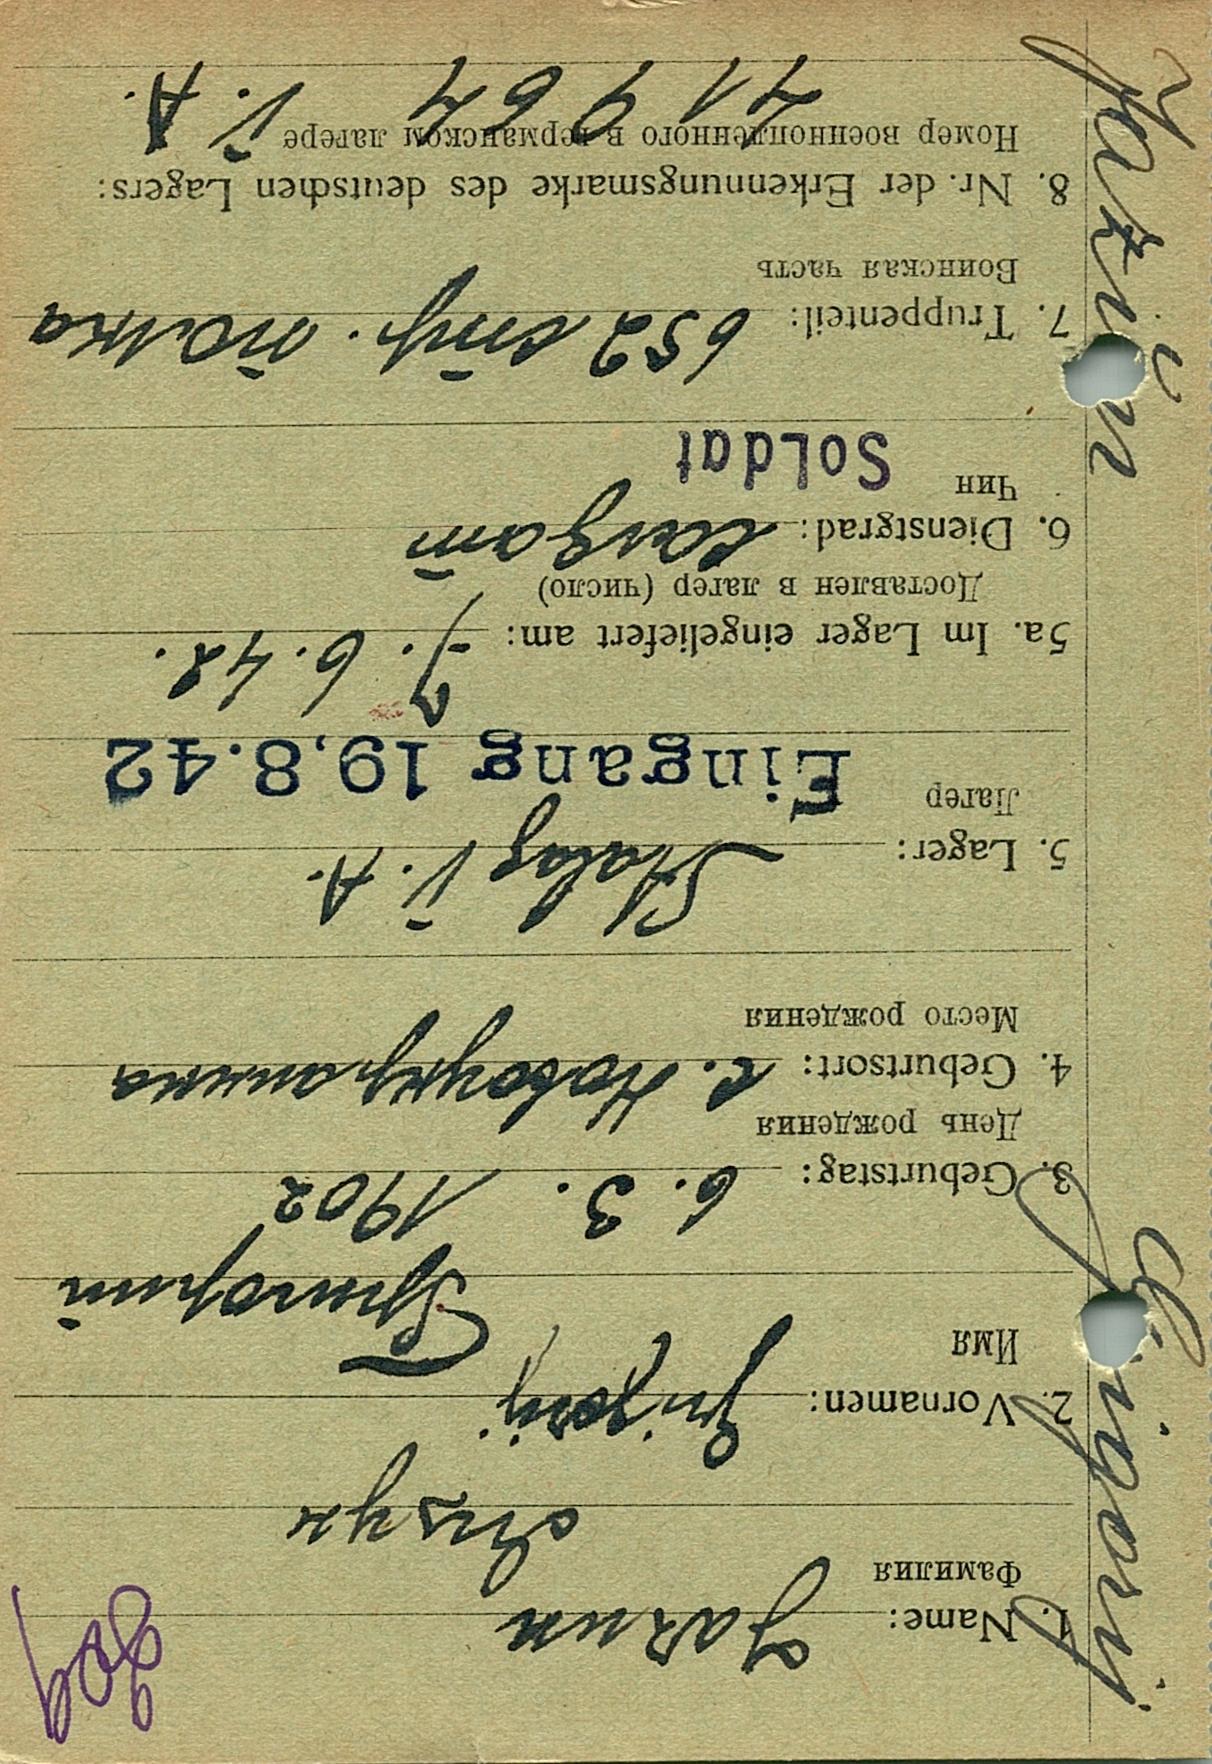 1. Name: Jazun
Фамилия Язун
2. Vornamen: Grigorij
Имя Григорий
3. Geburtstag: 6. 3. 1902
День рождения
4. Geburtsort: с. Новоукраинка
Место рождения
5. Lager: Stalag V. A.
Лагерь Eingang 19.8.42
5a. Im Lager eingeliefert am: 6. 42.
Доставлен в лагер (число)
6. Dienstgrad: солдат
Чин Soldat
7. Truppenteil: 652 стр. полка
Воинская часть
8. Nr. der Erkennungsmarke des deutschen Lagers:
Номер военнопленного в германском лагере
41964 V. A.
Jazün Grigorij